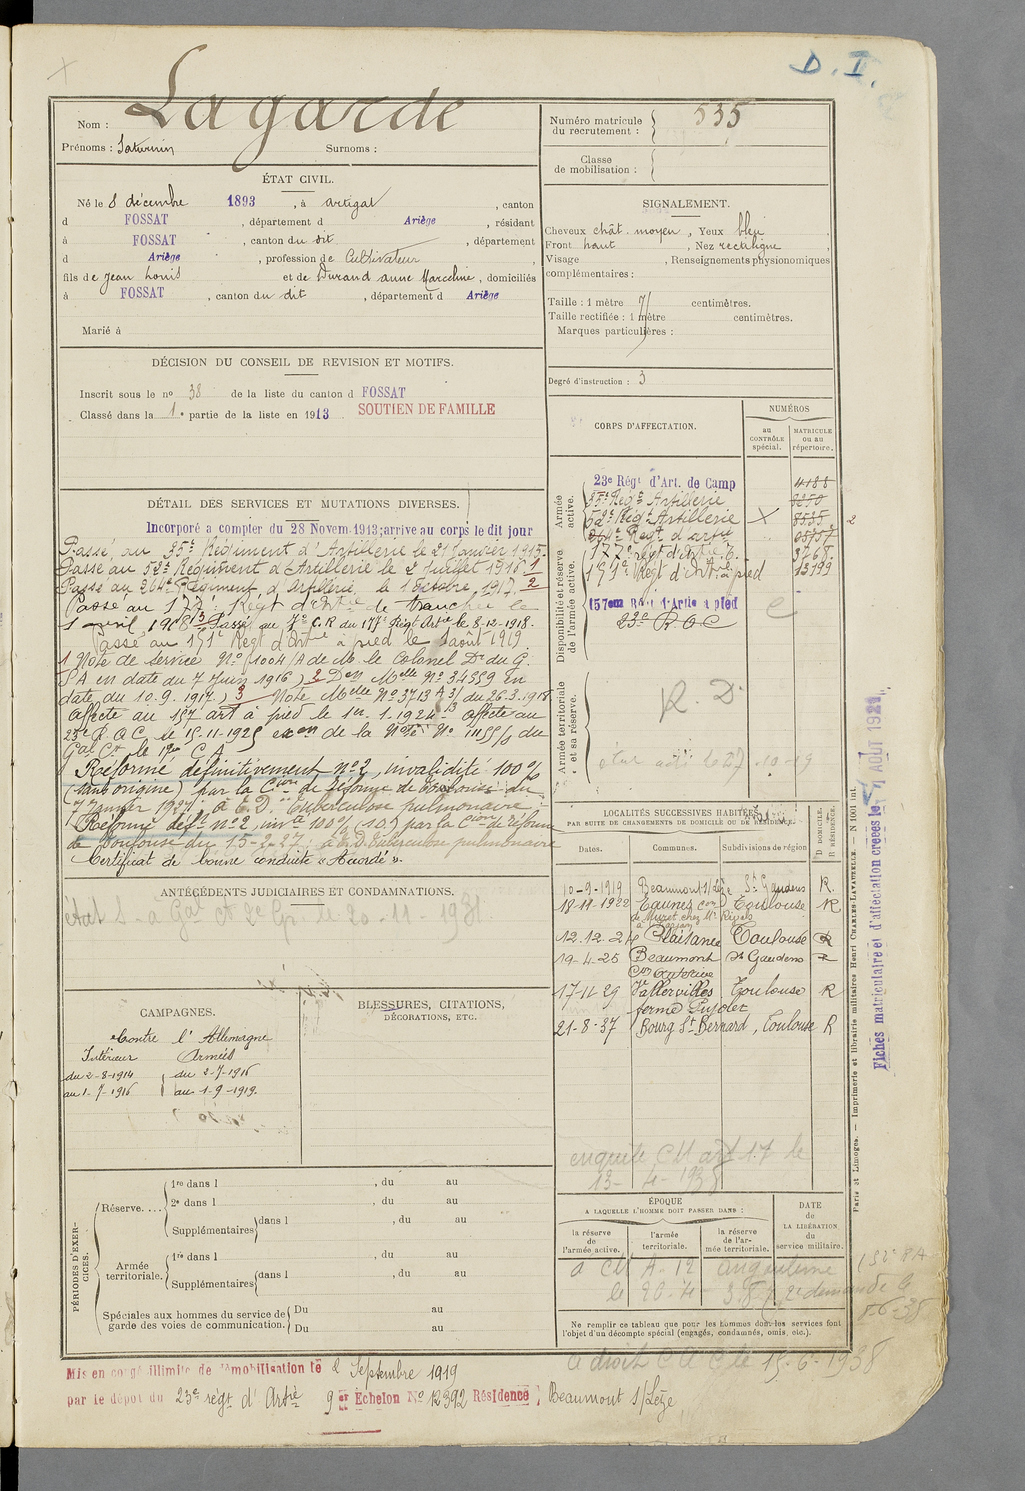 D. I.
Nom : Lagarde
Prénoms : Saturnin Surnoms :
Numéro matricule du recrutement : 535
Classe de mobilisation :
ÉTAT CIVIL.
Né le 8 décembre 1893, à Artigat, canton
d FOSSAT, département d Ariège, résidant
à FOSSAT, canton du dit, département
d Ariège, profession de Cultivateur
fils de Jean Louis et de Durand Anne Marceline, domiciliés
à FOSSAT, canton du dit, département d Ariège
Marié à
SIGNALEMENT.
Cheveux chât. moyen, Yeux bleu
Front haut, Nez rectiligne
Visage , Renseignements physionomiques
complémentaires :
Taille : 1 mètre 71 centimètres.
Taille rectifiée : 1 mètre centimètres.
Marques particulières :
Degré d'instruction : 3
DÉCISION DU CONSEIL DE REVISION ET MOTIFS.
Inscrit sous le no 38 de la liste du canton d FOSSAT
Classé dans la 1e partie de la liste en 1913 SOUTIEN DE FAMILLE
DÉTAIL DES SERVICES ET MUTATIONS DIVERSES.
Incorporé a compter du 28 Novem. 1913; arrive au corps le dit jour
Passé au 35e Régiment d'Artillerie le 21 Janvier 1915.
Passé au 52e Régiment d'Artillerie le 2 Juillet 1916 1
Passé au 264e Régiment d'Artillerie le 1 Octobre 1917. 2
Passé au 177e Régt d'Artie de tranchée le
1 avril 1918 3 Passé au 7e C.R du 177e Régt Artie le 8-12-1918.
Passé au 171e Régt d'Artie à pied le 1 août 1919
1 Note de Service No 1004/A de Mr le Colonel Dr du G.
P A en date du 7 Juin 1916) 2 Don Melle No 34559 en
date du 10.9.1917) 3 Note Melle No 3713 A 3/ du 26-3-1918
Affecté au 157 art à pied le 1er. 1. 1924. Affecté au
23e R.O.C le 15-11-1925 exon de la Note No du
Gal Ct le 17e C A
Réformé définitivement no 2, invalidité 100 %
(sans origine) par la Cion de réforme de Toulouse du
7 Janvier 1927; à E.D. "Tuberculose pulmonaire"
Réformé déft no 2, inv.té 100% (10) par la Cion de réforme
de Toulouse du 15-2-27 à E.D. Tuberculose pulmonaire
Certificat de bonne conduite "Accordé".
CORPS D'AFFECTATION.
NUMÉROS
au CONTRÔLE spécial.
MATRICULE ou au répertoire.
Armée active.
23e Régt d'Art. de Camp 4188
35e Régt Artillerie 9250
52e Régt Artillerie X 8535 2
264e Régt d'artie
Disponibilité et réserve de l'armée active.
177e régt d'Artie T. 3768
171e Régt d'Artie à pied 13199
157eme Régt d'Artie à pied
23e R.O.C
Armée territoriale et sa réserve.
R. D.
LOCALITÉS SUCCESSIVES HABITÉES
PAR SUITE DE CHANGEMENTS DE DOMICILE OU DE RÉSIDENCE.
Dates. Communes. Subdivisions de région D DOMICILE. R RÉSIDENCE.
10-9-1919 Beaumont s/Lèze St Gaudens R.
18-11-1922 Eaunes con Toulouse R
de Muret chez Mr
12.12.24 Plaisance Toulouse R
19-4-25 Beaumont St Gaudens R
17-11-29 Toulouse R
ferme Pujolet
21-8-37 Bourg St Bernard, Toulouse R
enquete CM art 17 le
13-4-1938
ANTÉCÉDENTS JUDICIAIRES ET CONDAMNATIONS.
état S - à Gal le 20-11-1931
CAMPAGNES.
Contre l'Allemagne
Intérieur Armées
du 2-8-1914 du 2-7-1916
au 1-7-1916 au 1-9-1919.
BLESSURES, CITATIONS,
DÉCORATIONS, ETC.
PÉRIODES D'EXERCICES.
Réserve....
1re dans l , du au
2e dans l , du au
Supplémentaires dans l , du au
Armée territoriale.
1re dans l , du au
Supplémentaires dans l , du au
Spéciales aux hommes du service de garde des voies de communication.
Du au
Du au
ÉPOQUE
A LAQUELLE L'HOMME DOIT PASSER DANS :
la réserve de l'armée active.
l'armée territoriale.
la réserve de l'armée territoriale.
DATE de LA LIBÉRATION du service militaire.
Ne remplir ce tableau que pour les hommes dont les services font
l'objet d'un décompte spécial (engagés, condamnés, omis, etc.).
a droit C le 15-6-1938
Mis en congé illimité de démobilisation le 2 Septembre 1919
par le dépôt du 23e régt d'Artie 9eme Échelon No 12392 Résidence Beaumont s/Lèze
Paris et Limoges. — Imprimerie et librairie militaires Henri CHARLES-LAVAUZELLE. — N 1001 int.
Fiches matriculaire et d'affectation créées le 1 AOUT 1921